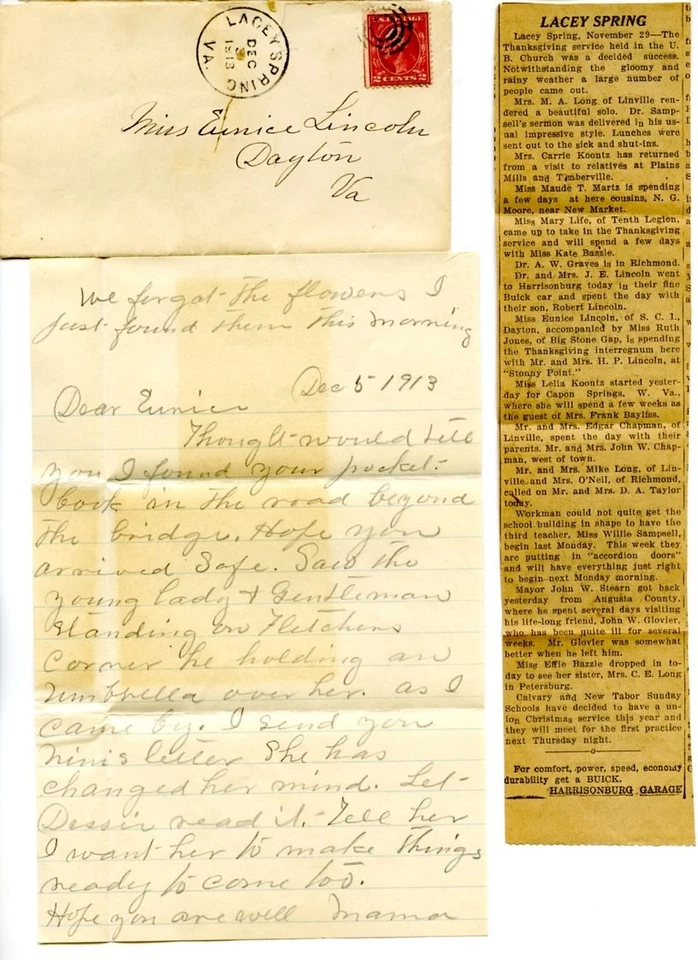 LACEY SPRING
VA.
DEC
1913
U.S. POSTAGE
2 CENTS 2
Miss Eunice Lincoln
Dayton
Va
We forgot the flowers I
just found them this morning
Dec 5 1913
Dear Eunice
Thought would tell
you I found your pocket-
book in the road beyond
the bridge. Hope you
arrived safe. Saw the
young lady & Gentleman
standing on Fletchers
Corner he holding an
umbrella over her. as I
came by. I send you
Ninis letter She has
changed her mind. Let
Dessie read it. Tell her
I want her to make things
ready to come too.
Hope you are well Mama
LACEY SPRING
Lacey Spring, November 29—The
Thanksgiving service held in the U.
B. Church was a decided success.
Notwithstanding the gloomy and
rainy weather a large number of
people came out.
Mrs. M. A. Long of Linville ren-
dered a beautiful solo. Dr. Samp-
sell's sermon was delivered in his us-
ual impressive style. Lunches were
sent out to the sick and shut-ins.
Mrs. Carrie Koontz has returned
from a visit to relatives at Plains
Mills and Timberville.
Miss Maude T. Martz is spending
a few days at here cousins, N. G.
Moore, near New Market.
Miss Mary Life, of Tenth Legion,
came up to take in the Thanksgiving
service and will spend a few days
with Miss Kate Bazzle.
Dr. A. W. Graves is in Richmond.
Dr. and Mrs. J. E. Lincoln went
to Harrisonburg today in their fine
Buick car and spent the day with
their son, Robert Lincoln.
Miss Eunice Lincoln, of S. C. I.,
Dayton, accompanied by Miss Ruth
Jones, of Big Stone Gap, is spending
the Thanksgiving interregnum here
with Mr. and Mrs. H. P. Lincoln, at
"Stonny Point."
Miss Lelia Koontz started yester-
day for Capon Springs, W. Va.,
where she will spend a few weeks as
the guest of Mrs. Frank Bayliss.
Mr. and Mrs. Edgar Chapman, of
Linville, spent the day with their
parents. Mr. and Mrs. John W. Chap-
man, west of town.
Mr. and Mrs. Mike Long, of Lin-
ville and Mrs. O'Neil, of Richmond,
called on Mr. and Mrs. D. A. Taylor
today.
Workman could not quite get the
school building in shape to have the
third teacher, Miss Willie Sampsell,
begin last Monday. This week they
are putting in "accordion doors"
and will have everything just right
to begin next Monday morning.
Mayor John W. Stearn got back
yesterday from Augusta County,
where he spent several days visiting
his life-long friend, John W. Glovier,
who has been quite ill for several
weeks. Mr. Glovier was somewhat
better when he left him.
Miss Effie Bazzle dropped in to-
day to see her sister, Mrs. C. E. Long
in Petersburg.
Calvary and New Tabor Sunday
Schools have decided to have a un-
ion Christmas service this year and
they will meet for the first practice
next Thursday night.
For comfort, power, speed, economy
durability get a BUICK.
HARRISONBURG GARAGE